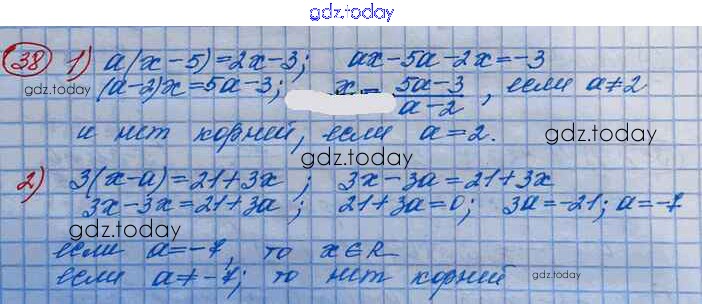 gdz.today
38 1) a(x-5)=2x-3; ax-5a-2x=-3
gdz.today (a-2)x=5a-3; x = 5a-3/a-2, если a≠2
и нет корней, если a=2. gdz.today
gdz.today
2) 3(x-a)=21+3x; 3x-3a=21+3x
gdz.today
3x-3x=21+3a; 21+3a=0; 3a=-21; a=-7
gdz.today
если a=-7, то x∈R
если a≠-7; то нет корней gdz.today